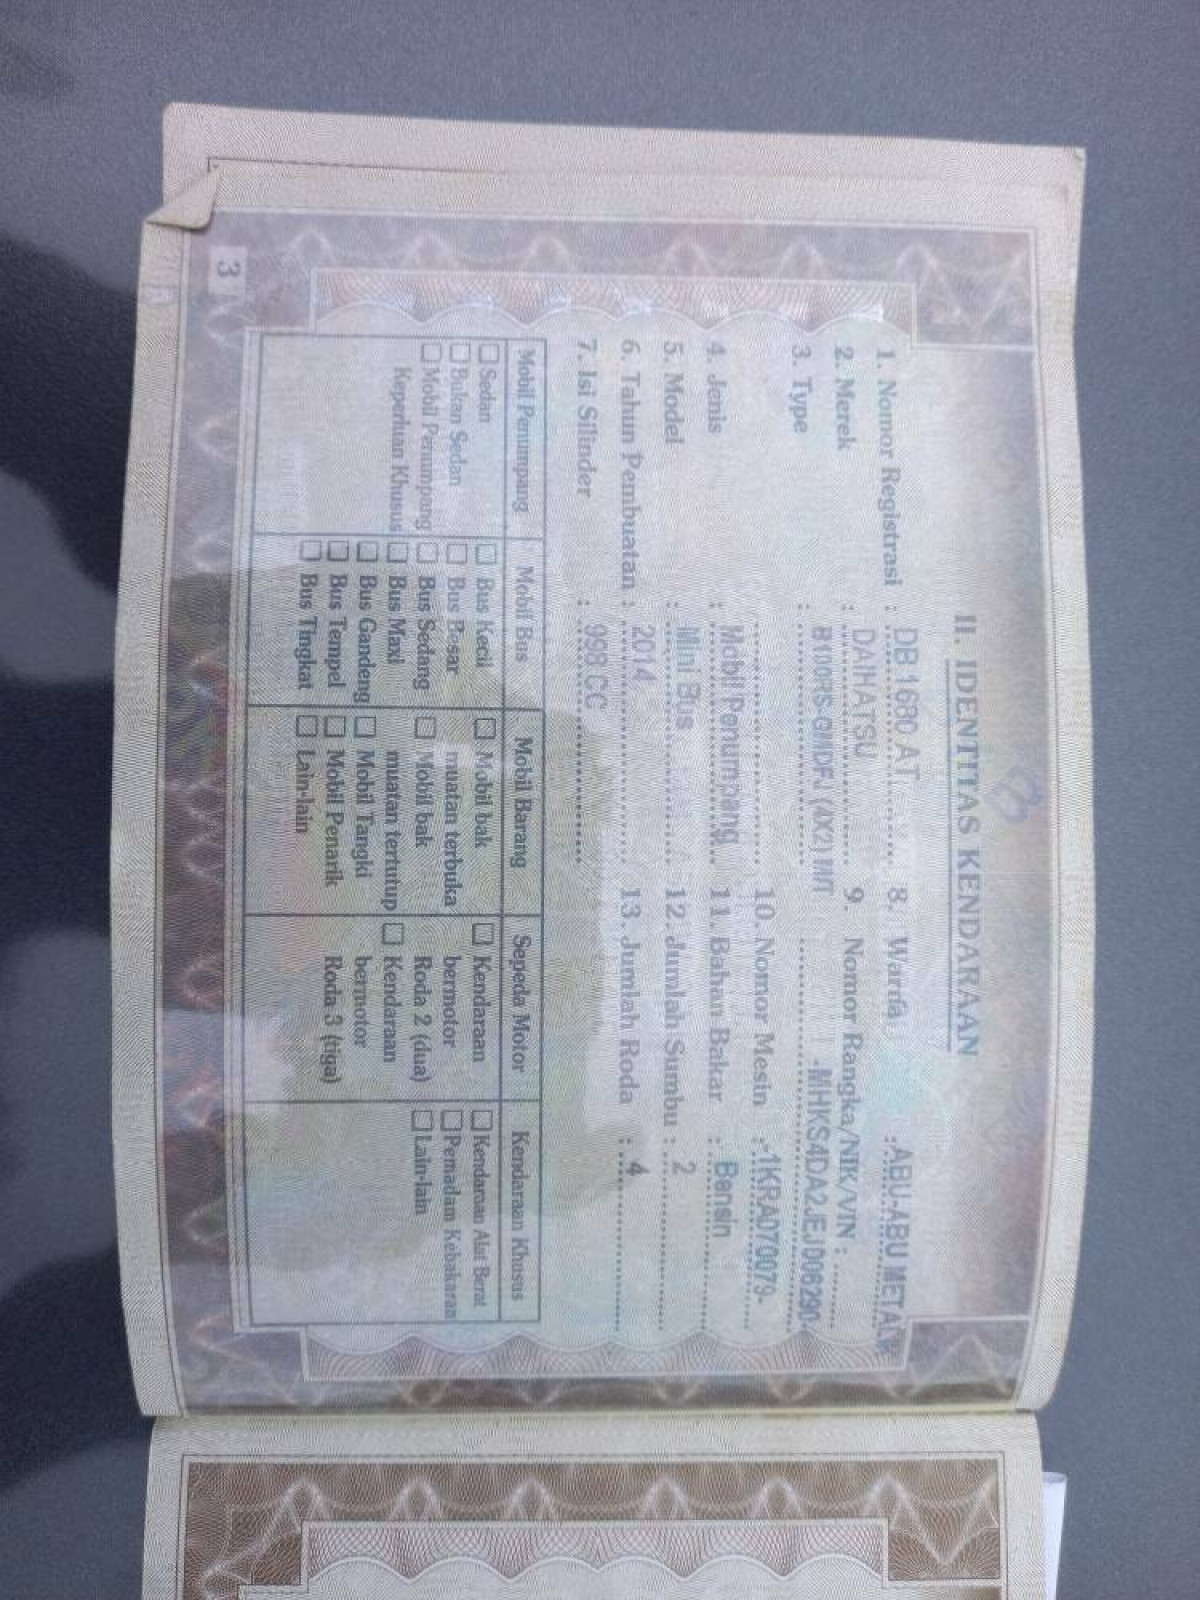 II. IDENTITAS KENDARAAN
1. Nomor Registrasi : DB 1680 AT
2. Merek : DAIHATSU
3. Type : B100RS-GMDFJ (4X2) M/T
4. Jenis : Mobil Penumpang
5. Model : Mini Bus
6. Tahun Pembuatan : 2014
7. Isi Silinder : 998 CC
8. Warna : ABU-ABU METALIK
9. Nomor Rangka/NIK/VIN :
-MHKS4DA2JEJ006290-
10. Nomor Mesin : -1KRA070079-
11. Bahan Bakar : Bensin
12. Jumlah Sumbu : 2
13. Jumlah Roda : 4
Mobil Penumpang
Sedan
Bukan Sedan
Mobil Penumpang
Keperluan Khusus
Mobil Bus
Bus Kecil
Bus Besar
Bus Sedang
Bus Maxi
Bus Gandeng
Bus Tempel
Bus Tingkat
Mobil Barang
Mobil bak
muatan terbuka
Mobil bak
muatan tertutup
Mobil Tangki
Mobil Penarik
Lain-lain
Sepeda Motor
Kendaraan
bermotor
Roda 2 (dua)
Kendaraan
bermotor
Roda 3 (tiga)
Kendaraan Khusus
Kendaraan Alat Berat
Pemadam Kebakaran
Lain-lain
3